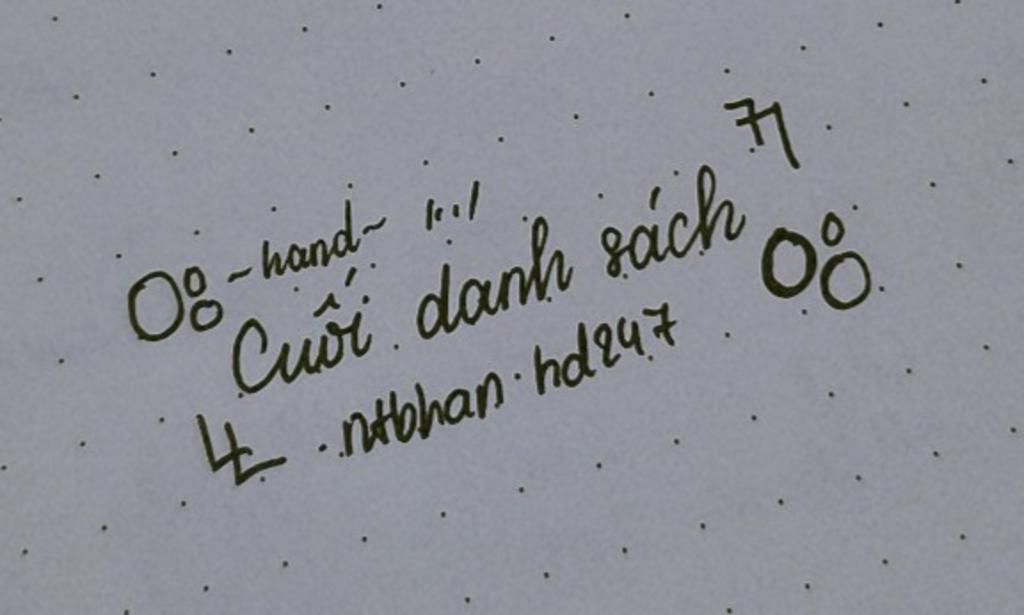 ~hand~
Cuối danh sách
.ntbhan.hd247